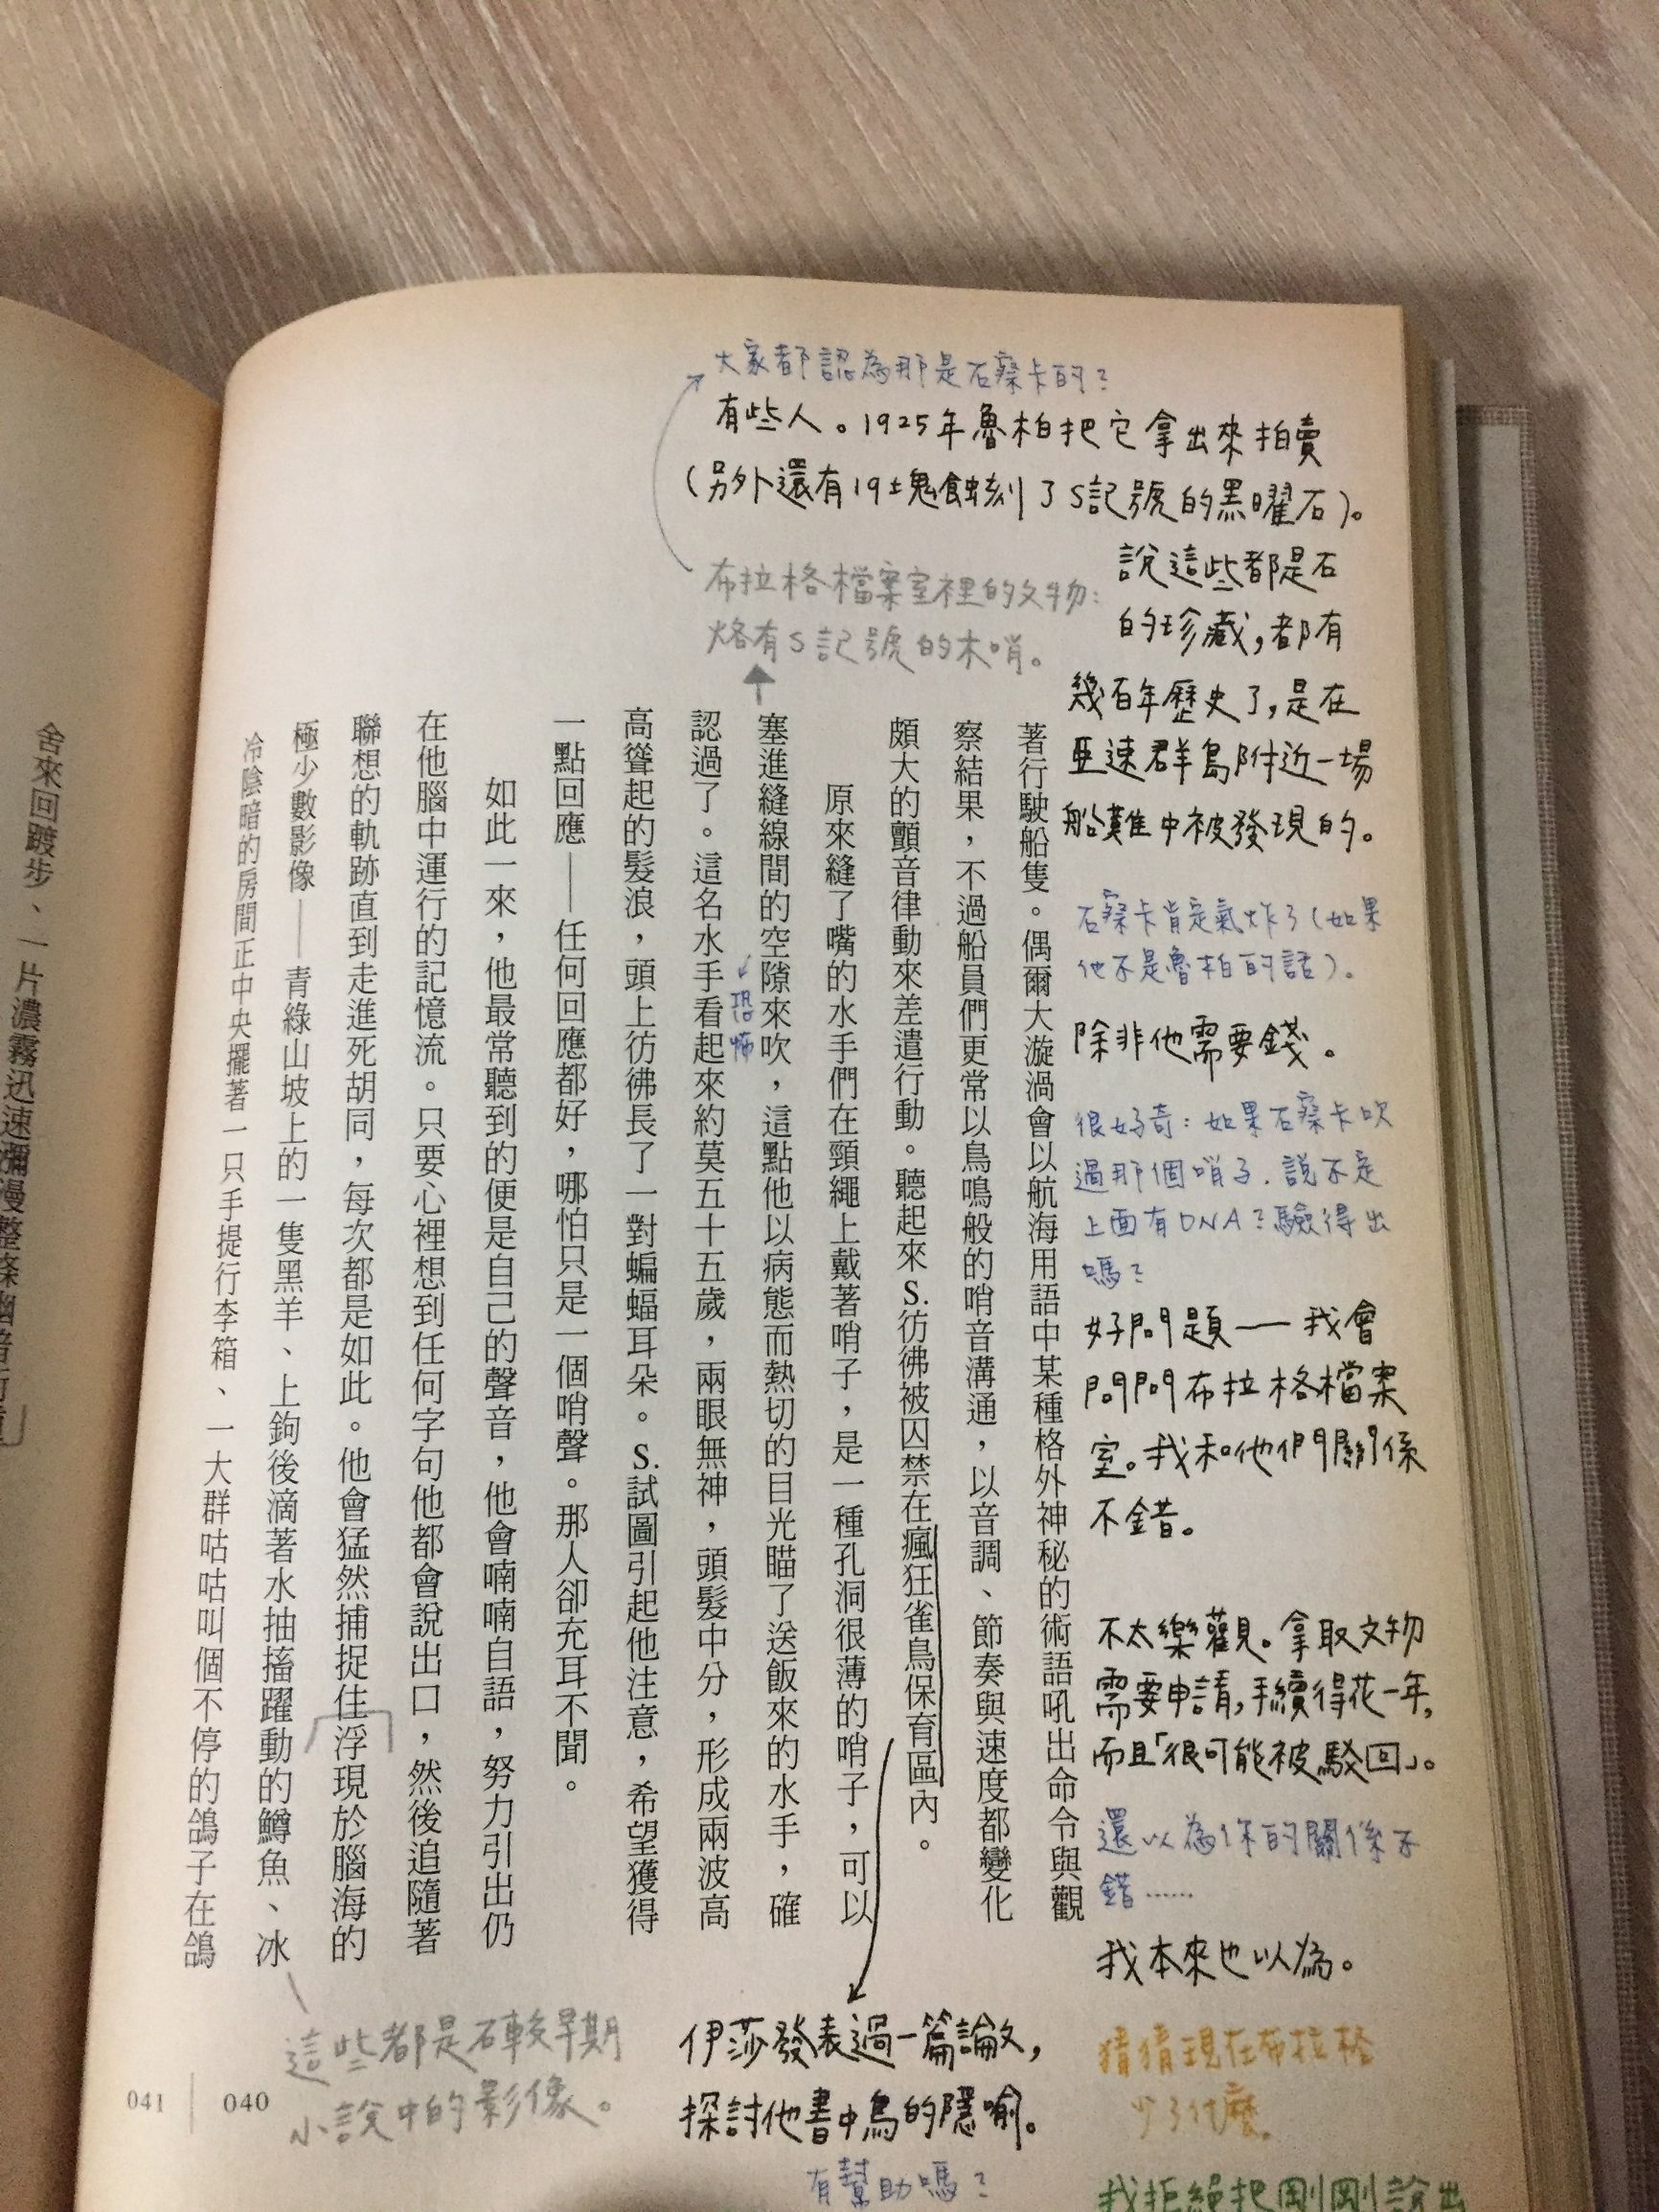 大家都認為那是石察卡的？
有些人。1925年魯柏把它拿出來拍賣
（另外還有19塊蝕刻了S記號的黑曜石）。
說這些都是石
的珍藏，都有
幾百年歷史了，是在
亞速群島附近一場
船難中被發現的。
布拉格檔案室裡的文物：
烙有S記號的木哨。
石察卡肯定氣炸了（如果
他不是魯柏的話）。
除非他需要錢。
很好奇：如果石察卡吹
過那個哨子，說不定
上面有DNA？驗得出
嗎？
好問題——我會
問問布拉格檔案
室。我和他們關係
不錯。
不太樂觀。拿取文物
需要申請，手續得花一年，
而且「很可能被駁回」。
還以為你的關係不
錯……
我本來也以為。
猜猜現在布拉格
少了什麼。
我拒絕把剛剛說出
著行駛船隻。偶爾大漩渦會以航海用語中某種格外神秘的術語吼出命令與觀
察結果，不過船員們更常以鳥鳴般的哨音溝通，以音調、節奏與速度都變化
頗大的顫音律動來差遣行動。聽起來S.彷彿被囚禁在瘋狂雀鳥保育區內。
原來縫了嘴的水手們在頸繩上戴著哨子，是一種孔洞很薄的哨子，可以
塞進縫線間的空隙來吹，這點他以病態而熱切的目光瞄了送飯來的水手，確
恐怖
認過了。這名水手看起來約莫五十五歲，兩眼無神，頭髮中分，形成兩波高
高聳起的髮浪，頭上彷彿長了一對蝙蝠耳朵。S.試圖引起他注意，希望獲得
一點回應——任何回應都好，哪怕只是一個哨聲。那人卻充耳不聞。
如此一來，他最常聽到的便是自己的聲音，他會喃喃自語，努力引出仍
在他腦中運行的記憶流。只要心裡想到任何字句他都會說出口，然後追隨著
聯想的軌跡直到走進死胡同，每次都是如此。他會猛然捕捉住浮現於腦海的
極少數影像——青綠山坡上的一隻黑羊、上鉤後滴著水抽搐躍動的鱒魚、冰
冷陰暗的房間正中央擺著一只手提行李箱、一大群咕咕叫個不停的鴿子在鴿
伊莎發表過一篇論文，
探討他書中鳥的隱喻。
有幫助嗎？
這些都是石較早期
小說中的影像。
041
040
舍來回踱步、一片濃霧迅速瀰漫整條